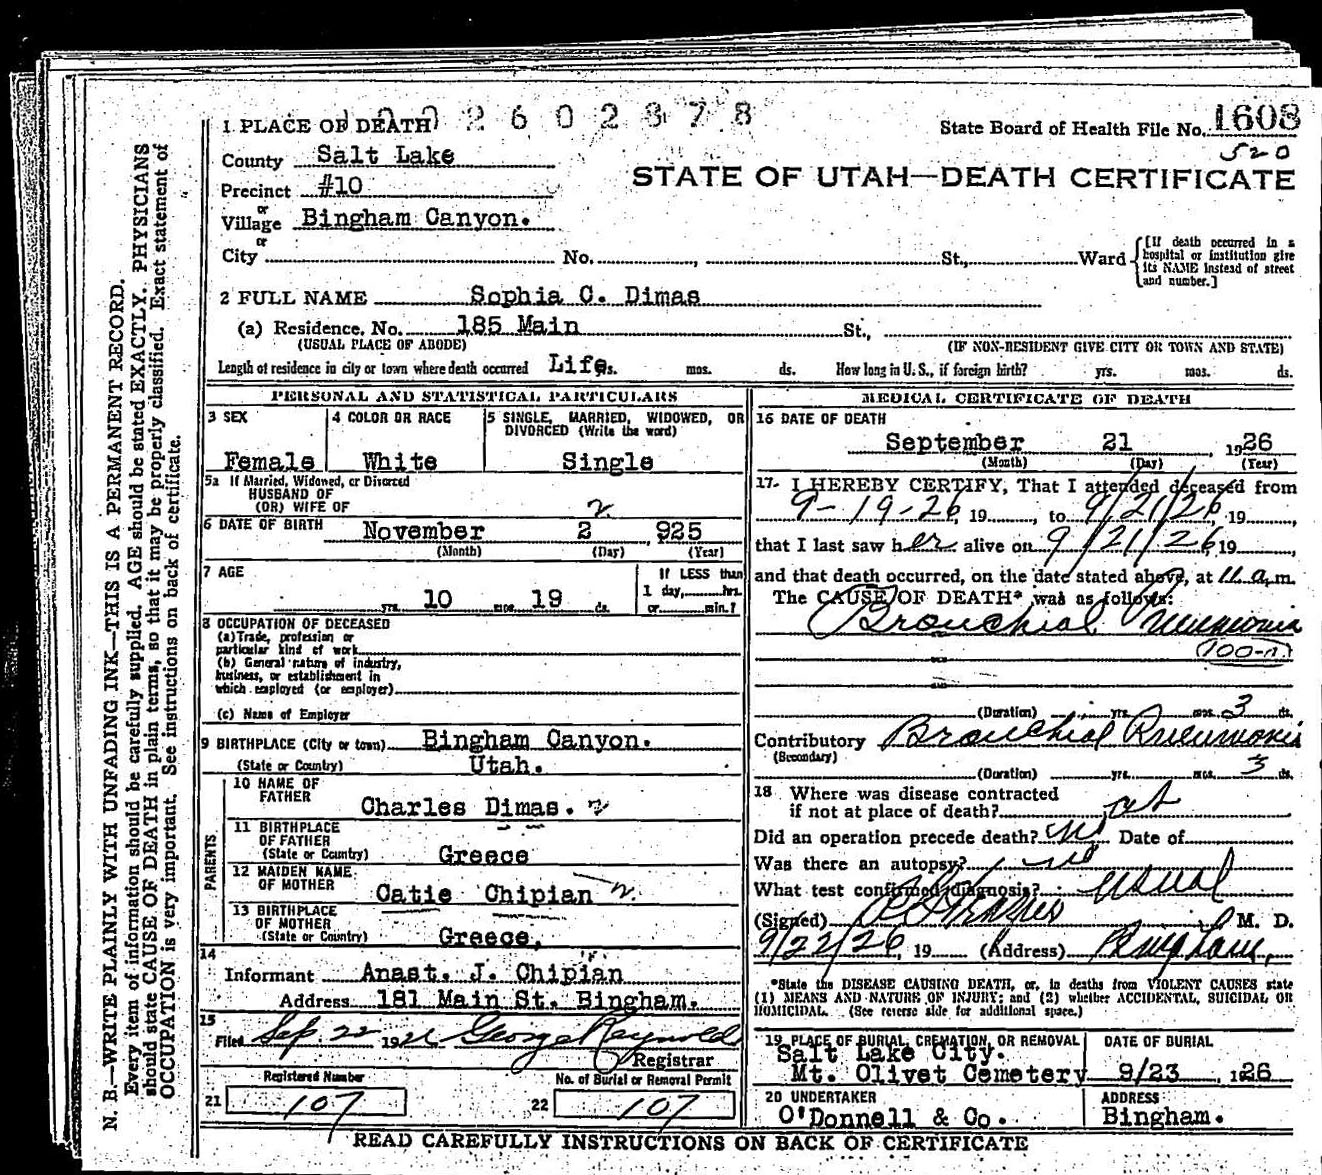 1 PLACE OF DEATH 2602378
State Board of Health File No. 1608
520
County Salt Lake
STATE OF UTAH—DEATH CERTIFICATE
Precinct #10
or
Village Bingham Canyon.
or
City No. St., Ward
[If death occurred in a hospital or institution give its NAME instead of street and number.]
2 FULL NAME Sophia C. Dimas
(a) Residence. No. 185 Main St.,
(USUAL PLACE OF ABODE) (IF NON-RESIDENT GIVE CITY OR TOWN AND STATE)
Length of residence in city or town where death occurred Life s. mos. ds. How long in U. S., if foreign birth? yrs. mos. ds.
PERSONAL AND STATISTICAL PARTICULARS
3 SEX
Female
4 COLOR OR RACE
White
5 SINGLE, MARRIED, WIDOWED, OR
DIVORCED (Write the word)
Single
5a If Married, Widowed, or Divorced
HUSBAND OF
(OR) WIFE OF
6 DATE OF BIRTH November 2 , 925
(Month) (Day) (Year)
7 AGE
yrs. 10 mos. 19 ds.
If LESS than
1 day, hrs.
or min.?
8 OCCUPATION OF DECEASED
(a) Trade, profession or
particular kind of work
(b) General nature of industry,
business, or establishment in
which employed (or employer)
(c) Name of Employer
9 BIRTHPLACE (City or town) Bingham Canyon.
(State or Country) Utah.
PARENTS
10 NAME OF
FATHER
Charles Dimas.
11 BIRTHPLACE
OF FATHER
(State or Country) Greece
12 MAIDEN NAME
OF MOTHER Catie Chipian
13 BIRTHPLACE
OF MOTHER
(State or Country) Greece,
14
Informant Anast. J. Chipian
Address 181 Main St. Bingham.
15
Filed Sep. 22 1926 George Reynolds
Registrar
Registered Number No. of Burial or Removal Permit
21 107 22 107
MEDICAL CERTIFICATE OF DEATH
16 DATE OF DEATH
September 21 , 1926
(Month) (Day) (Year)
17- I HEREBY CERTIFY, That I attended deceased from
9-19-26, 19 , to 9/21/26, 19 ,
that I last saw her alive on 9/21/26, 19 ,
and that death occurred, on the date stated above, at 11 a. m.
The CAUSE OF DEATH* was as follows:
Bronchial Pneumonia
(Duration) yrs. mos. 3 ds.
Contributory Bronchial Pneumonia
(Secondary)
(Duration) yrs. mos. 3 ds.
18 Where was disease contracted
if not at place of death?
Did an operation precede death? no Date of
Was there an autopsy? no
What test confirmed diagnosis? usual
(Signed) M. D.
9/22/26, 19 (Address) Bingham,
*State the DISEASE CAUSING DEATH, or, in deaths from VIOLENT CAUSES state
(1) MEANS AND NATURE OF INJURY; and (2) whether ACCIDENTAL, SUICIDAL OR
HOMICIDAL. (See reverse side for additional space.)
19 PLACE OF BURIAL, CREMATION, OR REMOVAL
Salt Lake City.
Mt. Olivet Cemetery
DATE OF BURIAL
9/23 , 1926
20 UNDERTAKER
O'Donnell & Co.
ADDRESS
Bingham.
READ CAREFULLY INSTRUCTIONS ON BACK OF CERTIFICATE
N. B.—WRITE PLAINLY WITH UNFADING INK—THIS IS A PERMANENT RECORD.
Every item of information should be carefully supplied. AGE should be stated EXACTLY. PHYSICIANS
should state CAUSE OF DEATH in plain terms, so that it may be properly classified. Exact statement of
OCCUPATION is very important. See instructions on back of certificate.